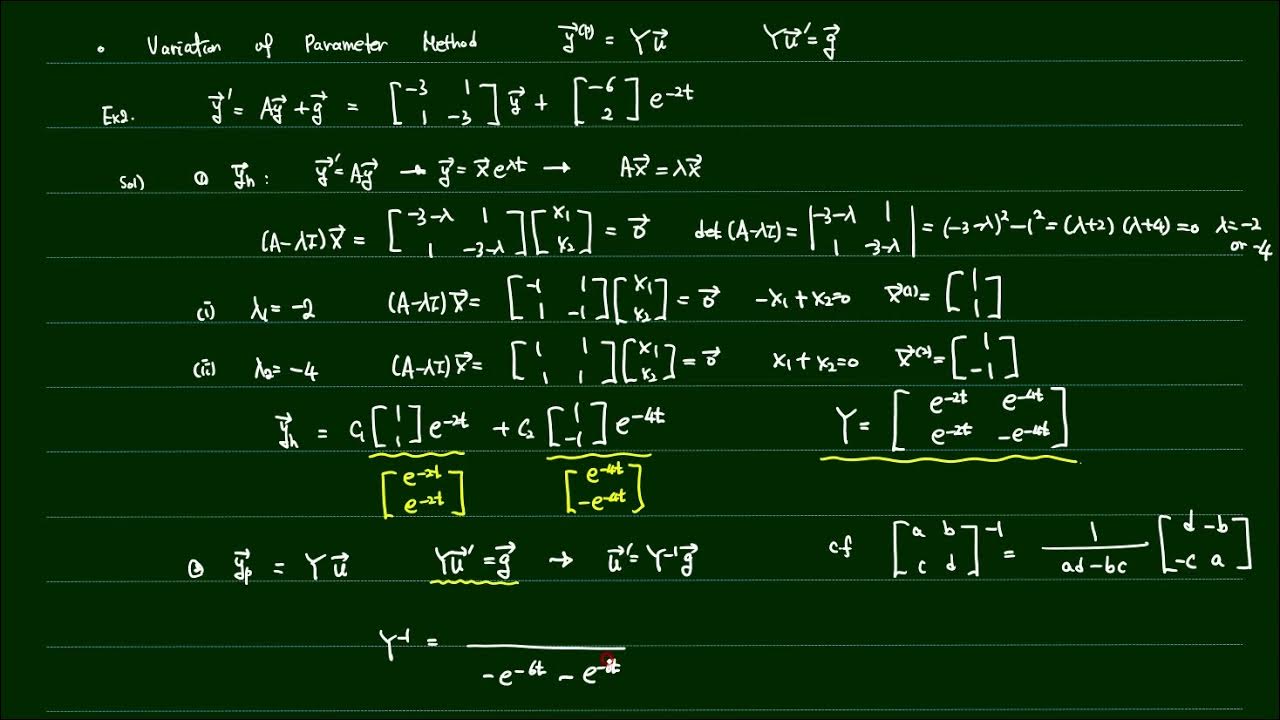 • Variation of Parameter Method y⃗⁽ᵖ⁾ = Yu⃗ Yu⃗' = g⃗
Ex2. y⃗' = Ay⃗ + g⃗ = [-3 1; 1 -3] y⃗ + [-6; 2] e^-2t
Sol) ① y⃗h : y⃗' = Ay⃗ → y⃗ = x⃗ e^λt → Ax⃗ = λx⃗
(A-λI)x⃗ = [-3-λ 1; 1 -3-λ] [x1; x2] = 0⃗ det(A-λI) = |-3-λ 1; 1 -3-λ| = (-3-λ)² - 1² = (λ+2)(λ+4) = 0 λ = -2 or -4
(i) λ1 = -2 (A-λI)x⃗ = [-1 1; 1 -1] [x1; x2] = 0⃗ -x1 + x2 = 0 x⃗⁽¹⁾ = [1; 1]
(ii) λ2 = -4 (A-λI)x⃗ = [1 1; 1 1] [x1; x2] = 0⃗ x1 + x2 = 0 x⃗⁽²⁾ = [1; -1]
y⃗h = C1 [1; 1] e^-2t + C2 [1; -1] e^-4t Y = [e^-2t e^-4t; e^-2t -e^-4t]
[e^-2t; e^-2t] [e^-4t; -e^-4t]
② y⃗p = Yu⃗ Yu⃗' = g⃗ → u⃗' = Y⁻¹g⃗ cf [a b; c d]⁻¹ = 1/(ad-bc) [d -b; -c a]
Y⁻¹ =
-e^-6t - e^-6t